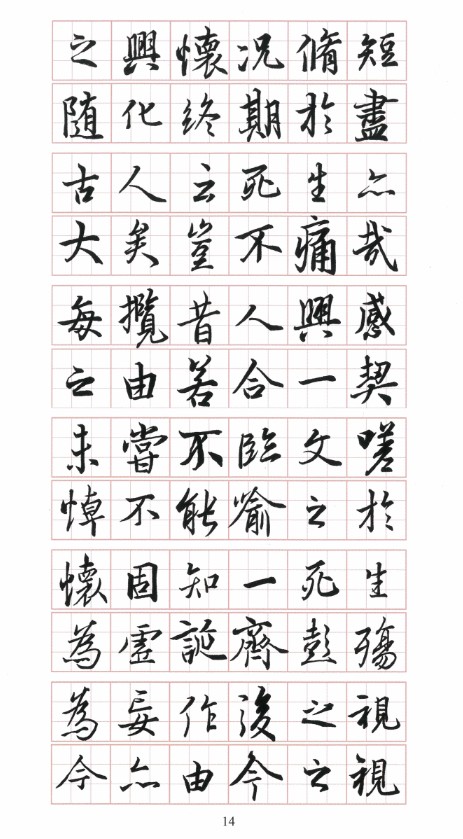 之興懷況脩短
随化終期於盡
古人云死生亦
大矣豈不痛哉
每攬昔人興感
之由若合一契
未嘗不臨文嗟
悼不能喻之於
懷固知一死生
為虛誕齊彭殤
為妄作後之視
今亦由今之視
14